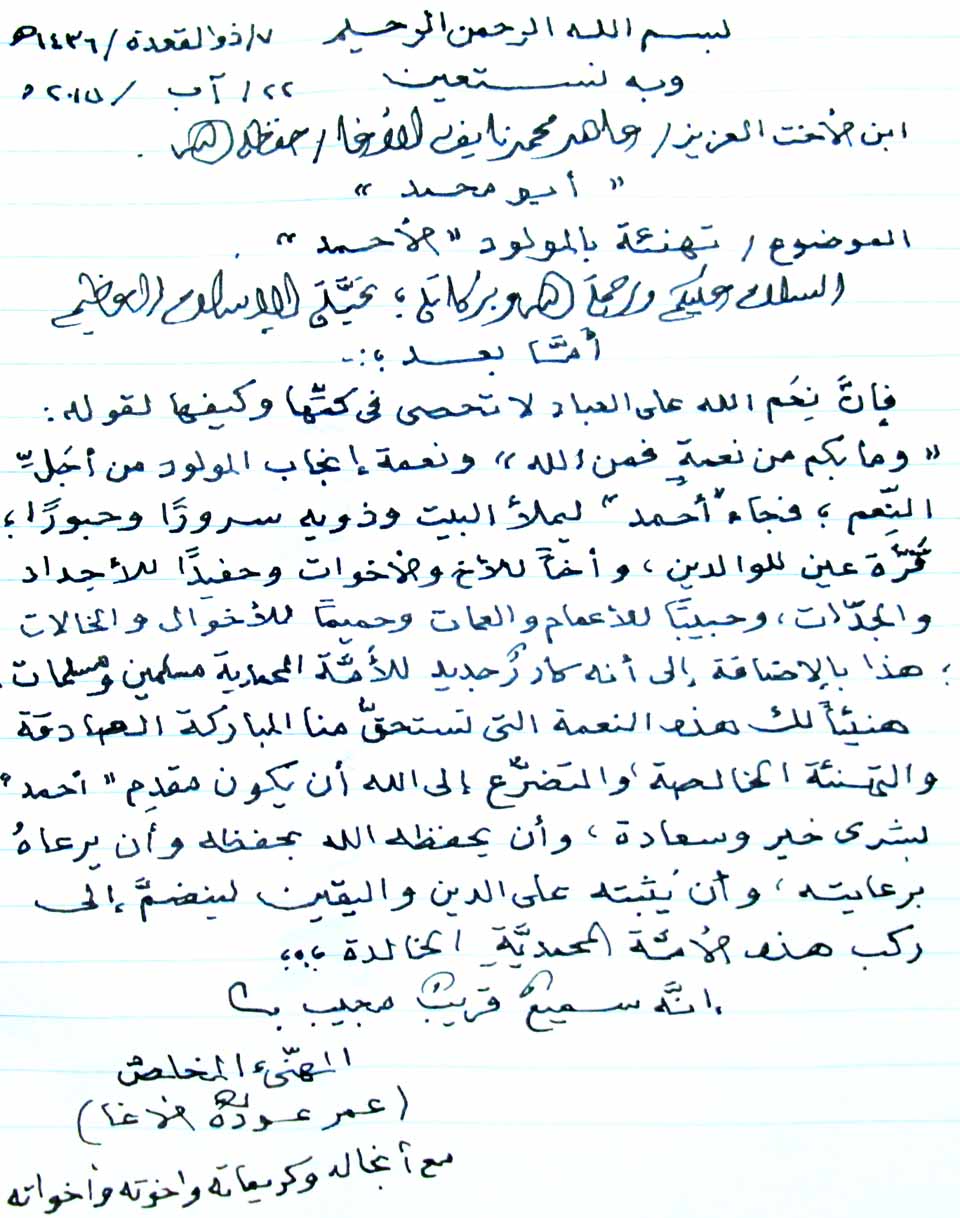 بسم الله الرحمن الرحيم ٧/ذو القعدة/١٤٣٦ه
وبه نستعين ٢٢/ آب /٢٠١٥م
ابن الأخت العزيز/ ماهر محمد نايف الأغا/ حفظه الله .
" أبو محمد "
الموضوع / تهنئة بالمولود "الأحمد" .
السلام عليكم ورحمة الله وبركاته ؛ تحيَّة الإسلام العظيم
أمَّا بعد ؛:-
فإنَّ نِعَم الله على العباد لا تحصى في كمِّها وكيفها لقوله :
"وما بكم من نعمةٍ فمن الله" ونعمة إنجاب المولود من أجَلِّ
النِّعم ؛ فجاء "أحمد" ليملأ البيت وذويه سرورًا وحبورًا ؛
قُرَّة عين للوالدين ، وأخاً للأخ والأخوات وحفيدًا للأجداد
والجدّات ، وحبيبًا للأعمام والعمات وحميمًا للأخوال والخالات
؛ هذا بالإضافة إلى أنه كادرٌ جديد للأمَّة المحمدية مسلمين ومسلمات .
هنيئاً لك هذه النعمة التي تستحقُّ منا المباركة الصادقة
والتهنئة الخالصة ، والتضرُّع إلى الله أن يكون مقدِم "أحمد"
بشرى خير وسعادة ، وأن يحفظه الله بحفظه وأن يرعاهُ
برعايته ، وأن يُثبته على الدين واليقين لينضمَّ إلى
ركب هذه الأمَّة المحمديَّةِ الخالدة ،،،
إنَّه سميعٌ قريبٌ مجيب
المهنّىء المخلص
(عمر عودة الأغا)
مع أنجاله وكريماته وإخوته وأخواته